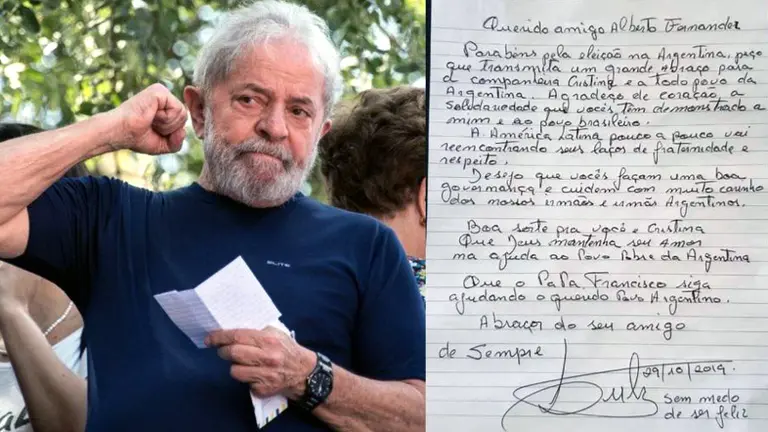 Querido amigo Alberto Fernandez
Parabéns pela eleição na Argentina, peço
que transmita um grande abraço para
a companheira Cristina e a todo povo da
Argentina. Agradeço de coração, a
solidariedade que vocês têm demonstrado a
mim e ao povo brasileiro.
A América Latina pouco a pouco vai
reencontrando seus laços de fraternidade e
respeito.
Desejo que vocês façam uma boa
governança e cuidem com muito carinho
dos nossos irmãos e irmãs Argentinos.
Boa sorte pra você e Cristina
Que Deus mantenha seu Amor
na ajuda ao Povo Pobre da Argentina
Que o PaPa Francisco siga
ajudando o querido Povo Argentino.
Abraços do seu amigo
de Sempre
29/10/2019.
Lula
sem medo
de ser feliz